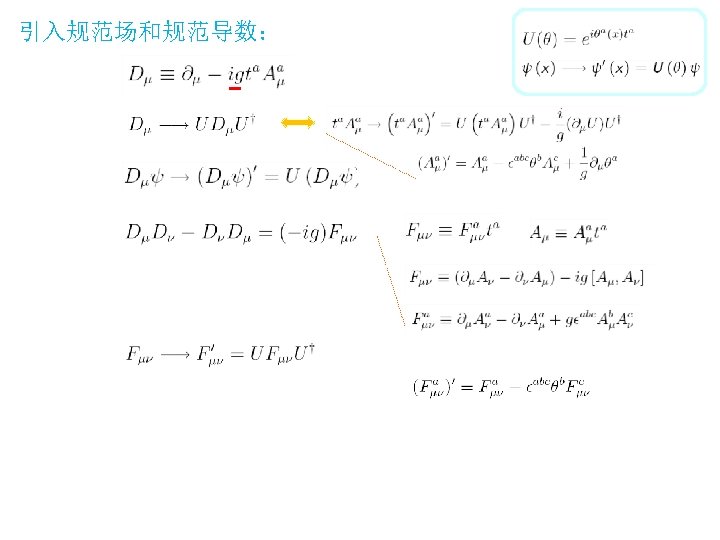 引入规范场和规范导数：
U(θ) = e^{iθ^a(x)t^a}
ψ(x) ⟶ ψ′(x) = U(θ)ψ
D_μ ≡ ∂_μ − igt^a A^a_μ
D_μ ⟶ U D_μ U^†
t^a A^a_μ → (t^a A^a_μ)′ = U (t^a A^a_μ) U^† − \frac{i}{g}(∂_μ U)U^†
(A^a_μ)′ = A^a_μ − ϵ^{abc}θ^b A^c_μ + \frac{1}{g}∂_μ θ^a
D_μ ψ → (D_μ ψ)′ = U (D_μ ψ)
D_μ D_ν − D_ν D_μ = (−ig)F_{μν}
F_{μν} ≡ F^a_{μν} t^a A_μ ≡ A^a_μ t^a
F_{μν} = (∂_μ A_ν − ∂_ν A_μ) − ig [A_μ, A_ν]
F^a_{μν} = ∂_μ A^a_ν − ∂_ν A^a_μ + gϵ^{abc} A^b_μ A^c_ν
F_{μν} ⟶ F′_{μν} = U F_{μν} U^†
(F^a_{μν})′ = F^a_{μν} − ϵ^{abc}θ^b F^c_{μν}